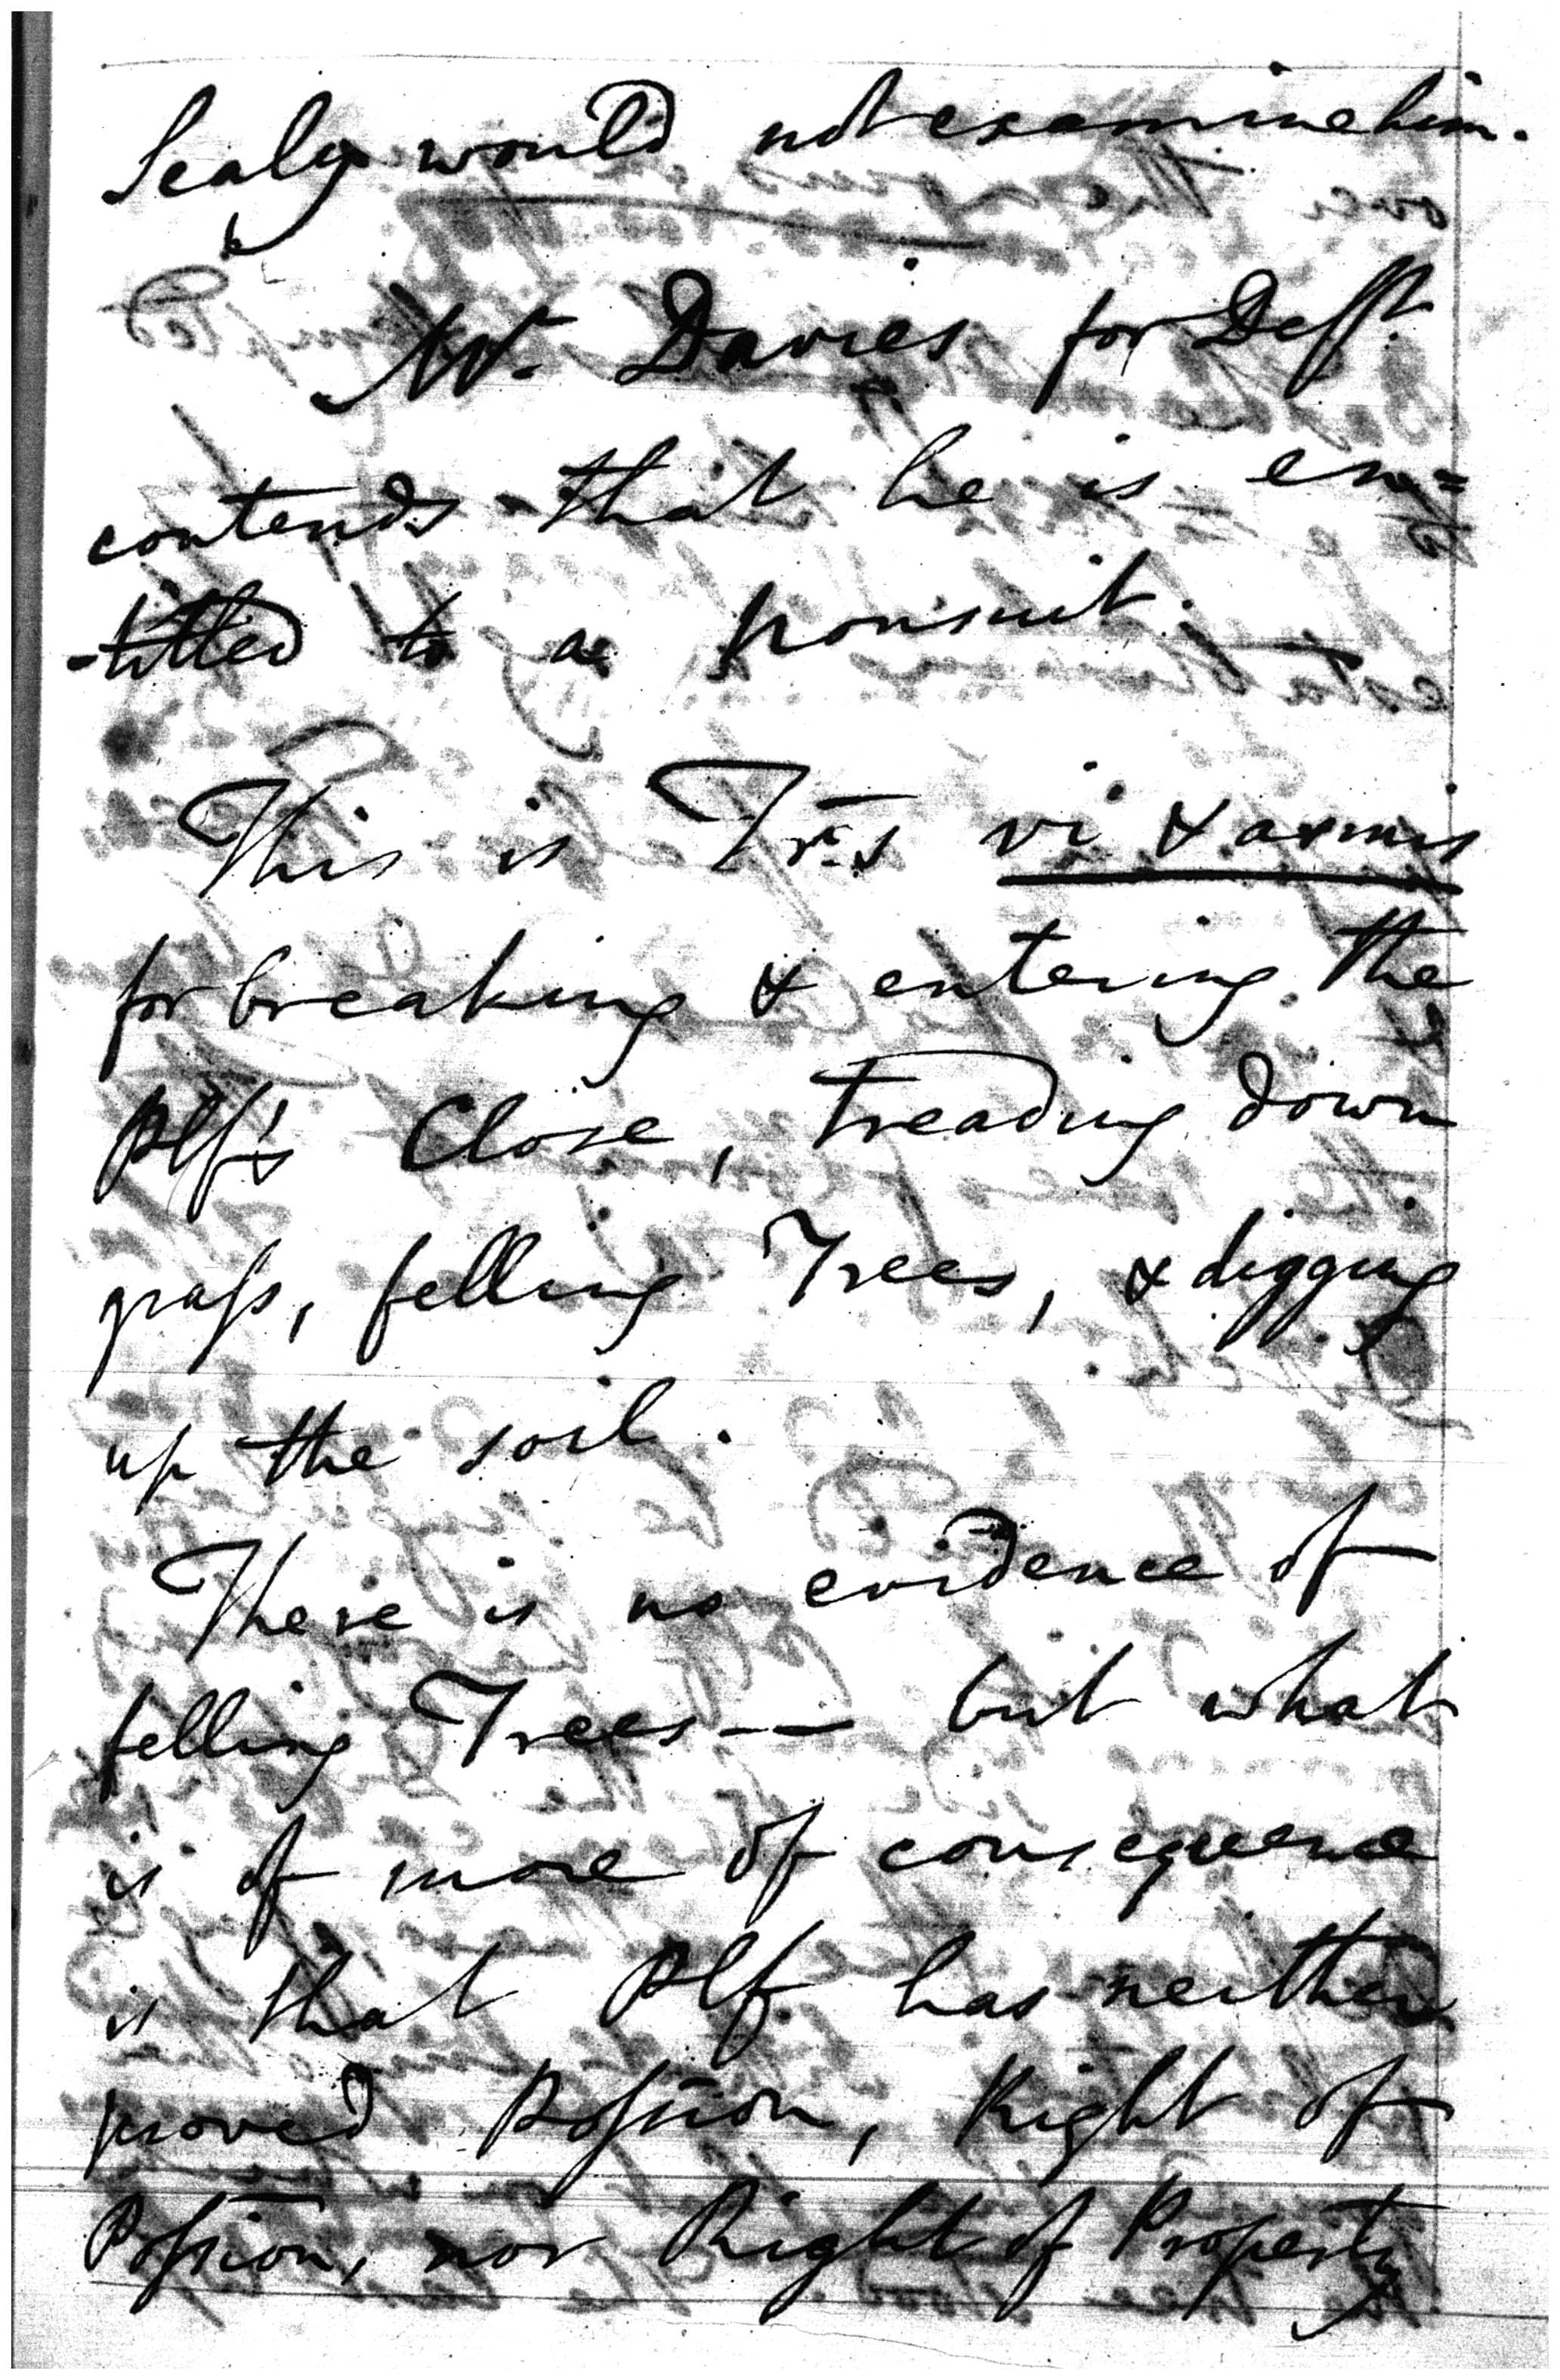 Sealy would not examine him.
Mr. Davies for Deft.
contends that he is en=
-titled to a nonsuit. —
This is Trs vi & armis
for breaking & entering the
Plf's Close, treading down
grass, felling Trees, & digging
up the soil.
There is no evidence of
felling Trees — but what
is of more of consequence
is that Plf has neither
proved Possion, Right of
Possion, nor Right of Property